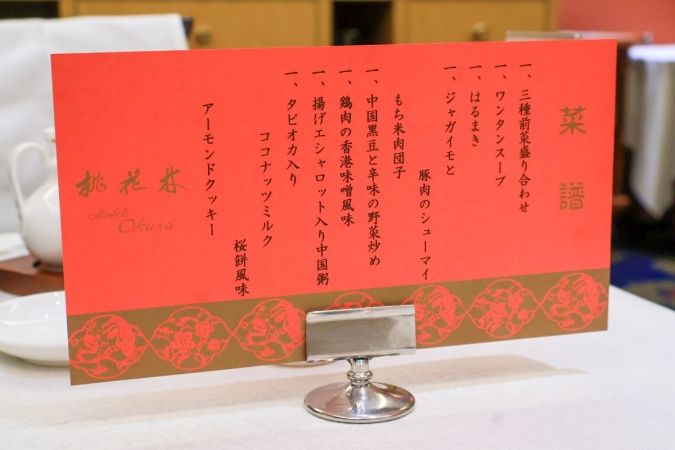 菜譜
一、三種前菜盛り合わせ
一、ワンタンスープ
一、はるまき
一、ジャガイモと
豚肉のシューマイ
もち米肉団子
一、中国黒豆と辛味の野菜炒め
一、鶏肉の香港味噌風味
一、揚げエシャロット入り中国粥
一、タピオカ入り
ココナッツミルク
桜餅風味
アーモンドクッキー
桃花林
Hotel
Okura